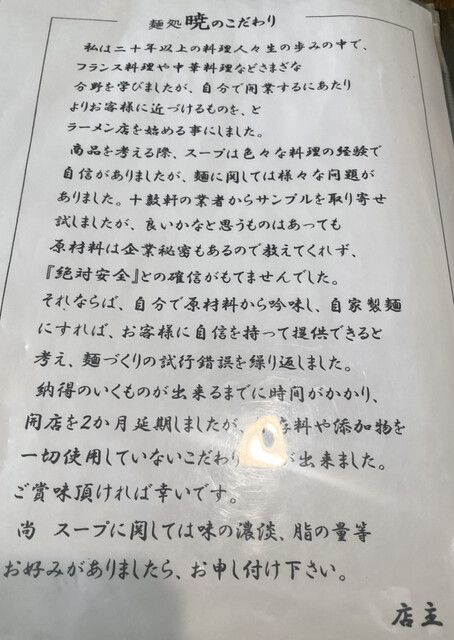 麺処 暁のこだわり
私は二十年以上の料理人々生の歩みの中で、
フランス料理や中華料理などさまざまな
分野を学びましたが、自分で開業するにあたり
よりお客様に近づけるものを、と
ラーメン店を始める事にしました。
商品を考える際、スープは色々な料理の経験で
自信がありましたが、麺に関しては様々な問題が
ありました。十数軒の業者からサンプルを取り寄せ
試しましたが、良いかなと思うものはあっても
原材料は企業秘密もあるので教えてくれず、
『絶対安全』との確信がもてませんでした。
それならば、自分で原材料から吟味し、自家製麺
にすれば、お客様に自信を持って提供できると
考え、麺づくりの試行錯誤を繰り返しました。
納得のいくものが出来るまでに時間がかかり、
開店を2か月延期しましたが、存料や添加物を
一切使用していないこだわりが出来ました。
ご賞味頂ければ幸いです。
尚 スープに関しては味の濃淡、脂の量等
お好みがありましたら、お申し付け下さい。
店主